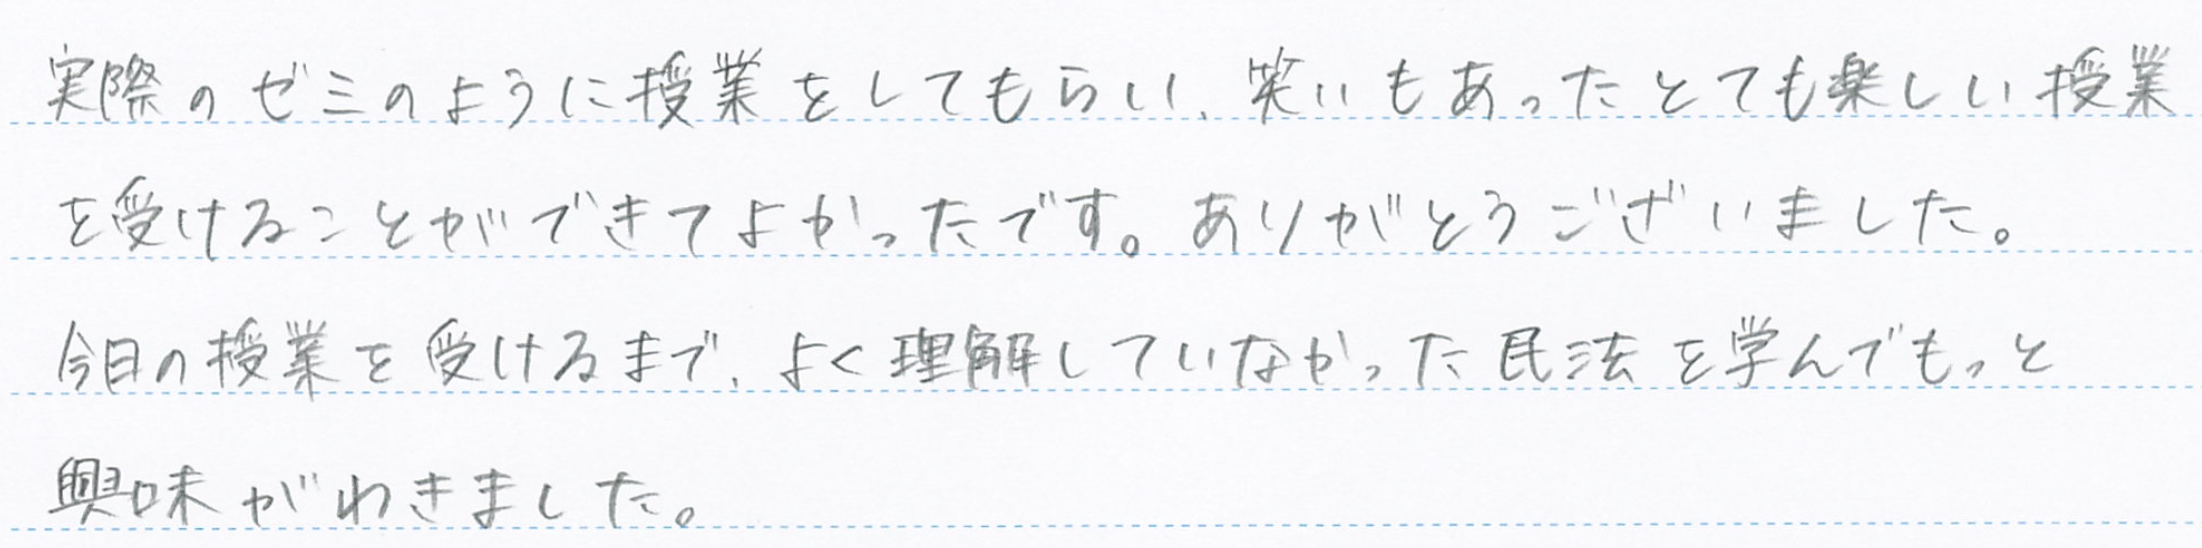 実際のゼミのように授業をしてもらい、笑いもあったとても楽しい授業
を受けることができてよかったです。ありがとうございました。
今日の授業を受けるまで、よく理解していなかった民法を学んでもっと
興味がわきました。